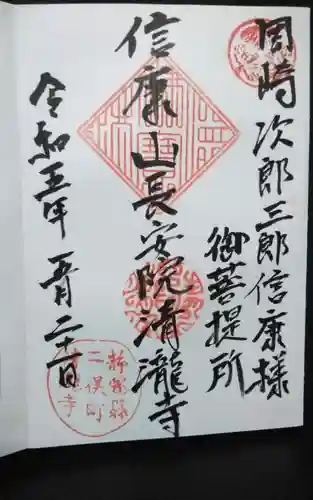 岡崎次郎三郎信康様
御菩提所
信康山長安院清瀧寺
令和五年 五月二十一日
二俣町